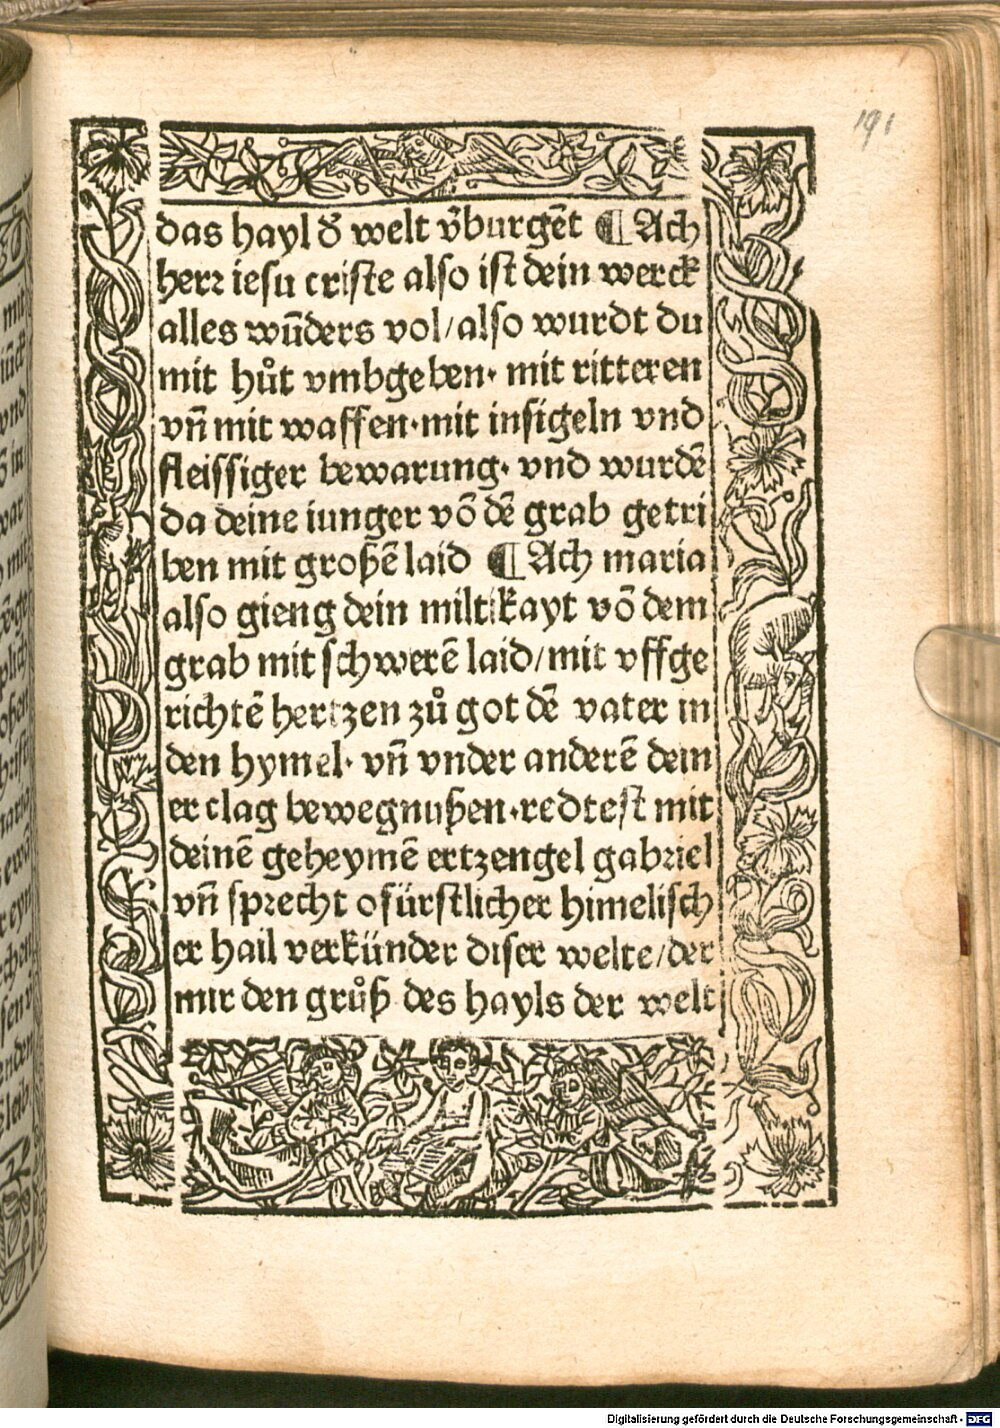 191
das hayl d̕ welt v̕burgēt ¶ Ach
herꝛ iesu criste also ist dein werck
alles wūders vol/also wurdt du
mit hůt vmbgeben· mit ritteren
vn̄ mit waffen·mit insigeln vnd
fleissiger bewarung· vnd wurdē
da deine iunger vō dē grab getri
ben mit großē laid ¶ Ach maria
also gieng dein miltikayt vō dem
grab mit schwerē laid/mit vffge
richtē hertzen zů got dē vater in
den hymel· vn̄ vnder anderē dein
er clag bewegnußen·redtest mit
deinē geheymē ertzengel gabriel
vn̄ spꝛecht o fürstlicher himelisch
er hail verkünder diser welte/der
mir den grůß des hayls der welt
Digitalisierung gefördert durch die Deutsche Forschungsgemeinschaft - DFG